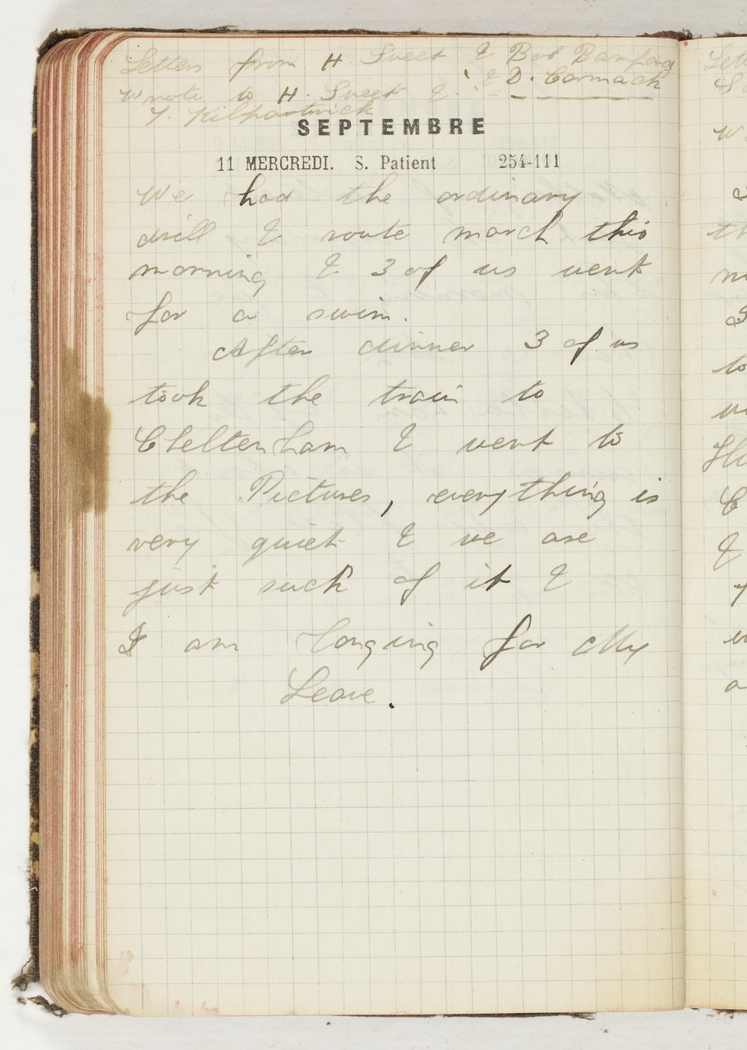 Letters from H Sweet & Bob Bamford
& D. Cormack
Wrote to H. Sweet &
Y. Kilpartrick
SEPTEMBRE
11 MERCREDI. S. Patient 254-111
We had the ordinary
drill & route march this
morning & 3 of us went
for a swim.
After dinner 3 of us
took the train to
Cheltenham & went to
the Pictures, everything is
very quiet & we are
just sick of it &
I am longing for My
Leave.